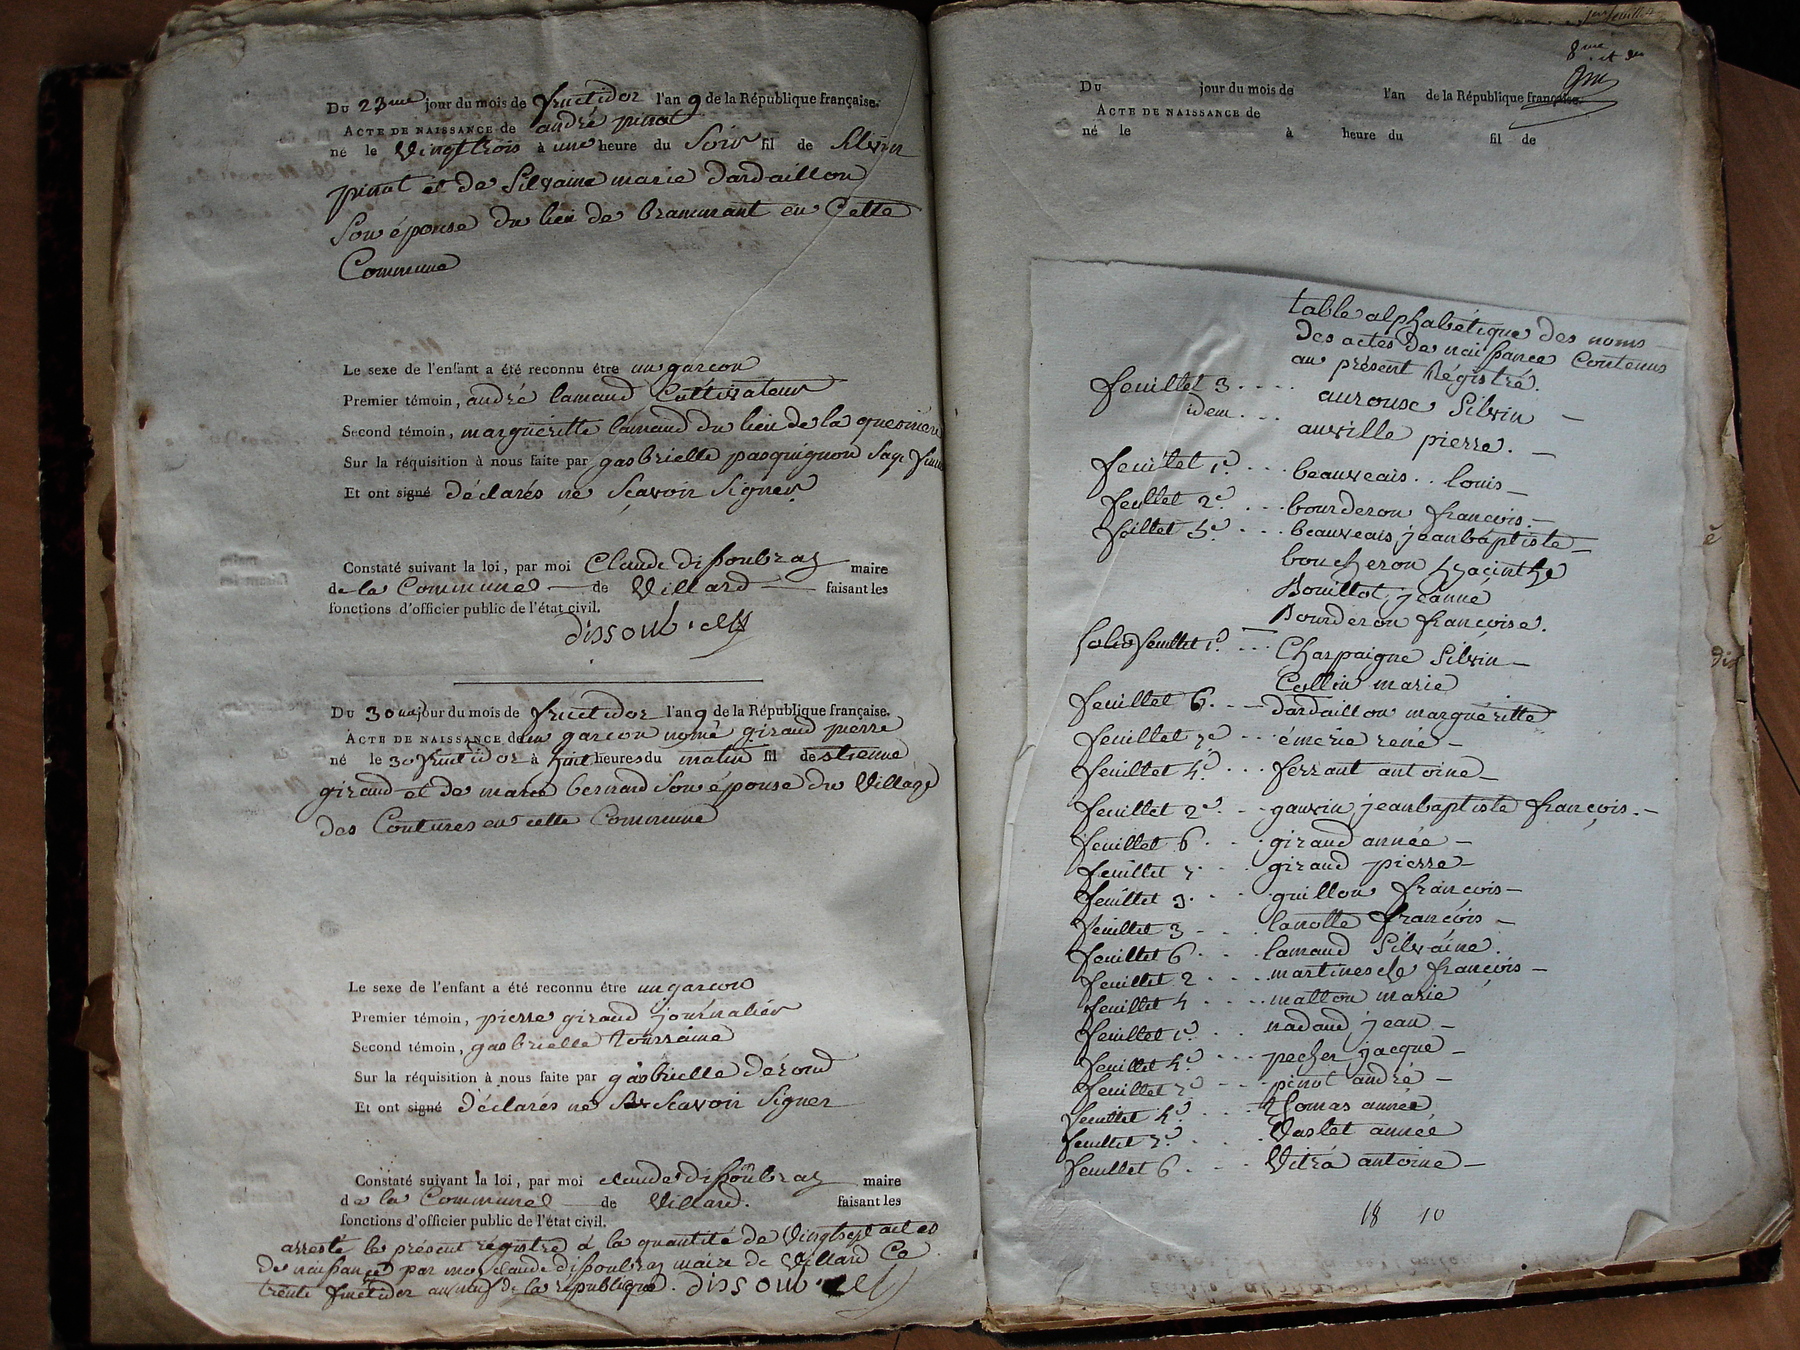 Du 23me jour du mois de fructidor l'an 9 de la République française.
Acte de naissance de andré pinot
né le Vingt trois à une heure du Soir fil de Silvin
pinot et de Silvaine marie dardaillon
Son épouse du lieu de brammant en Cette
Commune
Le sexe de l'enfant a été reconnu être un garcon
Premier témoin, andré lamaud Cultivateur
Second témoin, margueritte lamaud du lieu de la
Sur la réquisition à nous faite par gasbrielle pasquignon Sage
Et ont signé déclarés ne Sçavoir Signer
Constaté suivant la loi, par moi Claude dissoubray maire
de la Commune de Villard faisant les
fonctions d'officier public de l'état civil.
Du 30 jour du mois de fructidor l'an 9 de la République française.
Acte de naissance de un garcon nomé giraud pierre
né le 30 fructidor à huit heures du matin fil de etienne
giraud et de marie bernard Son épouse du Village
des Coutures en cette Commune
Le sexe de l'enfant a été reconnu être un garcon
Premier témoin, pierre giraud journalier
Second témoin, gasbrielle toursaine
Sur la réquisition à nous faite par gasbrielle dérond
Et ont signé déclarés ne Scavoir Signer
Constaté suivant la loi, par moi claude dissoubray maire
de la Commune de Villard. faisant les
fonctions d'officier public de l'état civil.
arresté le présent régistre à la quantité de Vingt sept actes
de naissance par moy claude dissoubray maire de Villard Ce
trente fructidor an neuf de la republique.
8me et
Du jour du mois de l'an de la République française.
Acte de naissance de
né le à heure du fil de
table alphabétique des noms
des actes de naissance Contenus
au présent Régistre.
feuillet 3 . . . . aurouse Silvin
idem . . . auville pierre.
feuillet 1er . . . beauveais . . louis
feuillet 2e . . . bourderon francois.
feuillet 5e . . . beauveais jean baptiste
boucheron hyacinthe
Bouillot jeanne
Bourderon francoise.
feuillet 1er . . . Charpaigne Silvin
Collin marie
feuillet 6. dardaillon marguéritte
feuillet 7e . . . émerie rené
feuillet 4e . . . ferrant antoine
feuillet 2e . . gauvin jean baptiste françois.
feuillet 6 . . . giraud année
feuillet 7 . . . giraud pierre
feuillet 3 . . . guillon françois
feuillet 3 lanotte françois
feuillet 6 . . . lamaud Silvaine.
feuillet 2 . . . martinesche françois
feuillet 4 . . . matton marie
feuillet 1er . . nadaud jean
feuillet 4e . . . pecher jacque
feuillet 7e pinot andré
feuillet 4e . . . thomas année
feuillet 7e . . . Vaslet année
feuillet 6 . . . Vitra antoine
18 10